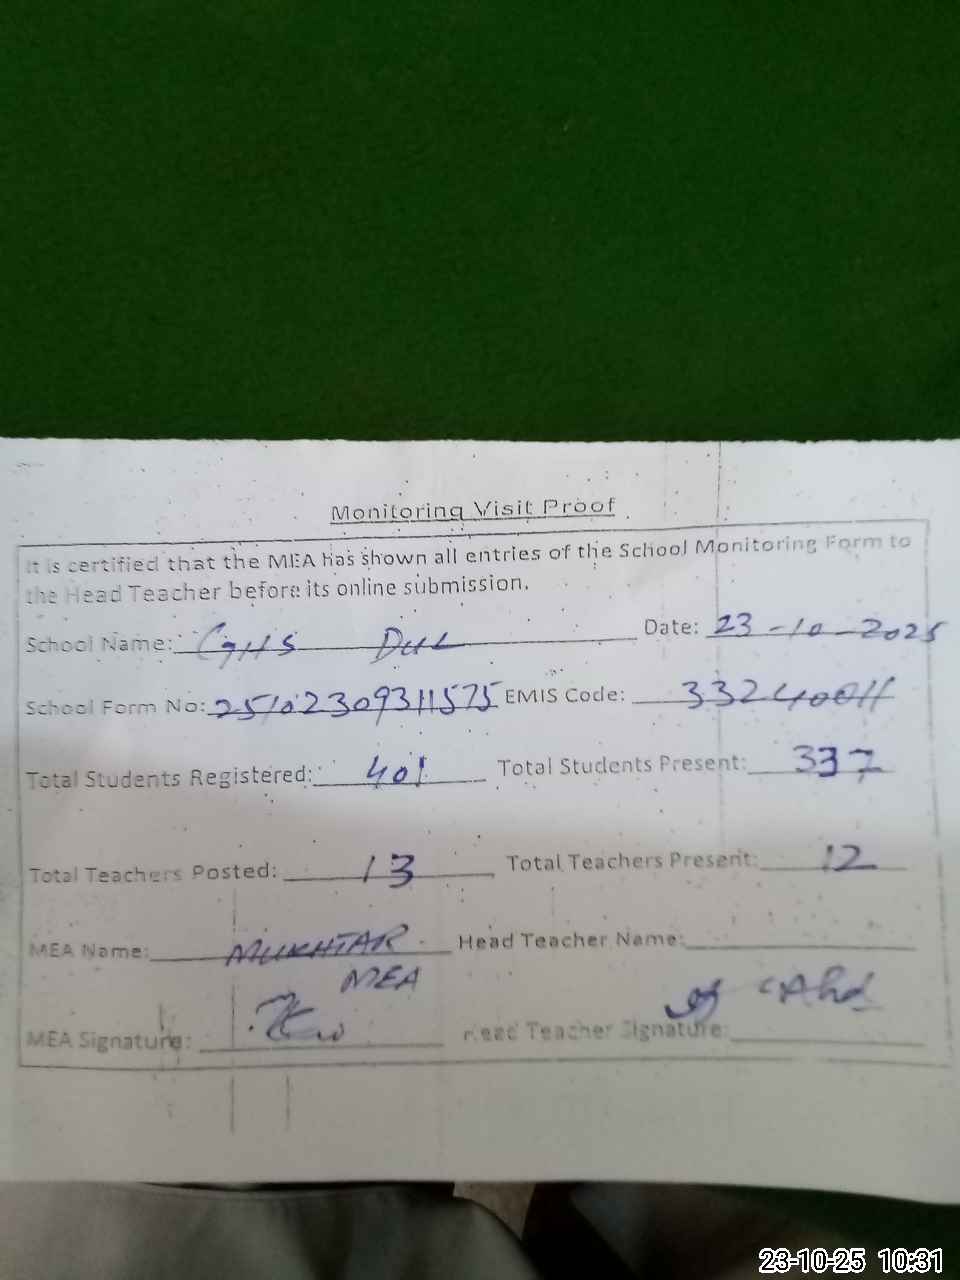 Monitoring Visit Proof
It is certified that the MEA has shown all entries of the School Monitoring Form to
the Head Teacher before its online submission.
School Name: GGHS Date: 23-10-2025
School Form No: 25102309311575 EMIS Code: 33240011
Total Students Registered: 401 Total Students Present: 337
Total Teachers Posted: 13 Total Teachers Present: 12
MEA Name: MUKHTAR Head Teacher Name:
MEA
MEA Signature: Head Teacher Signature:
23-10-25 10:31